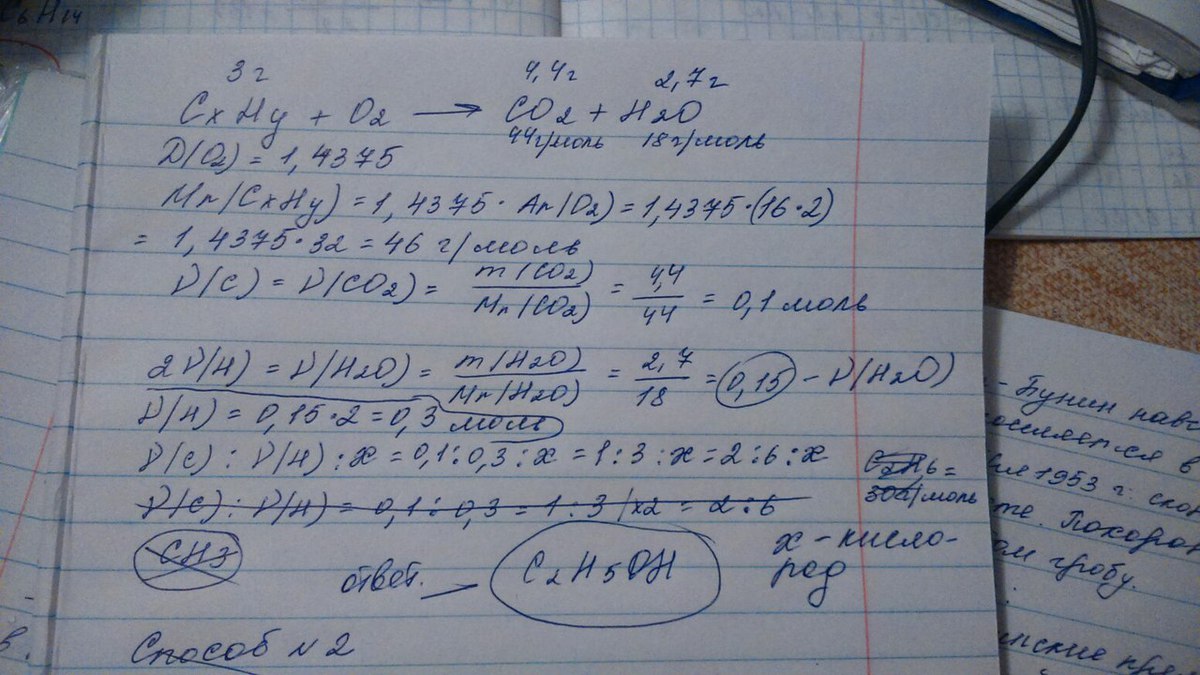 C6H14
3 г 4,4 г 2,7 г
CxHy + O2 → CO2 + H2O
44 г/моль 18 г/моль
D(O2) = 1,4375
Mr(CxHy) = 1,4375 · Ar(O2) = 1,4375 · (16·2)
= 1,4375 · 32 = 46 г/моль
ν(C) = ν(CO2) = m(CO2) / Mr(CO2) = 4,4 / 44 = 0,1 моль
2ν(H) = ν(H2O) = m(H2O) / Mr(H2O) = 2,7 / 18 = 0,15 – ν(H2O)
ν(H) = 0,15 · 2 = 0,3 моль
ν(C) : ν(H) : x = 0,1 : 0,3 : x = 1 : 3 : x = 2 : 6 : x
C2H6 =
30г/моль
ν(C) : ν(H) = 0,1 : 0,3 = 1 : 3 | x2 = 2 : 6
CH3
ответ. C2H5OH
x - кисло-
род
Способ №2
- Бунин
в
1953 г.
Похорон
гробу.
в.